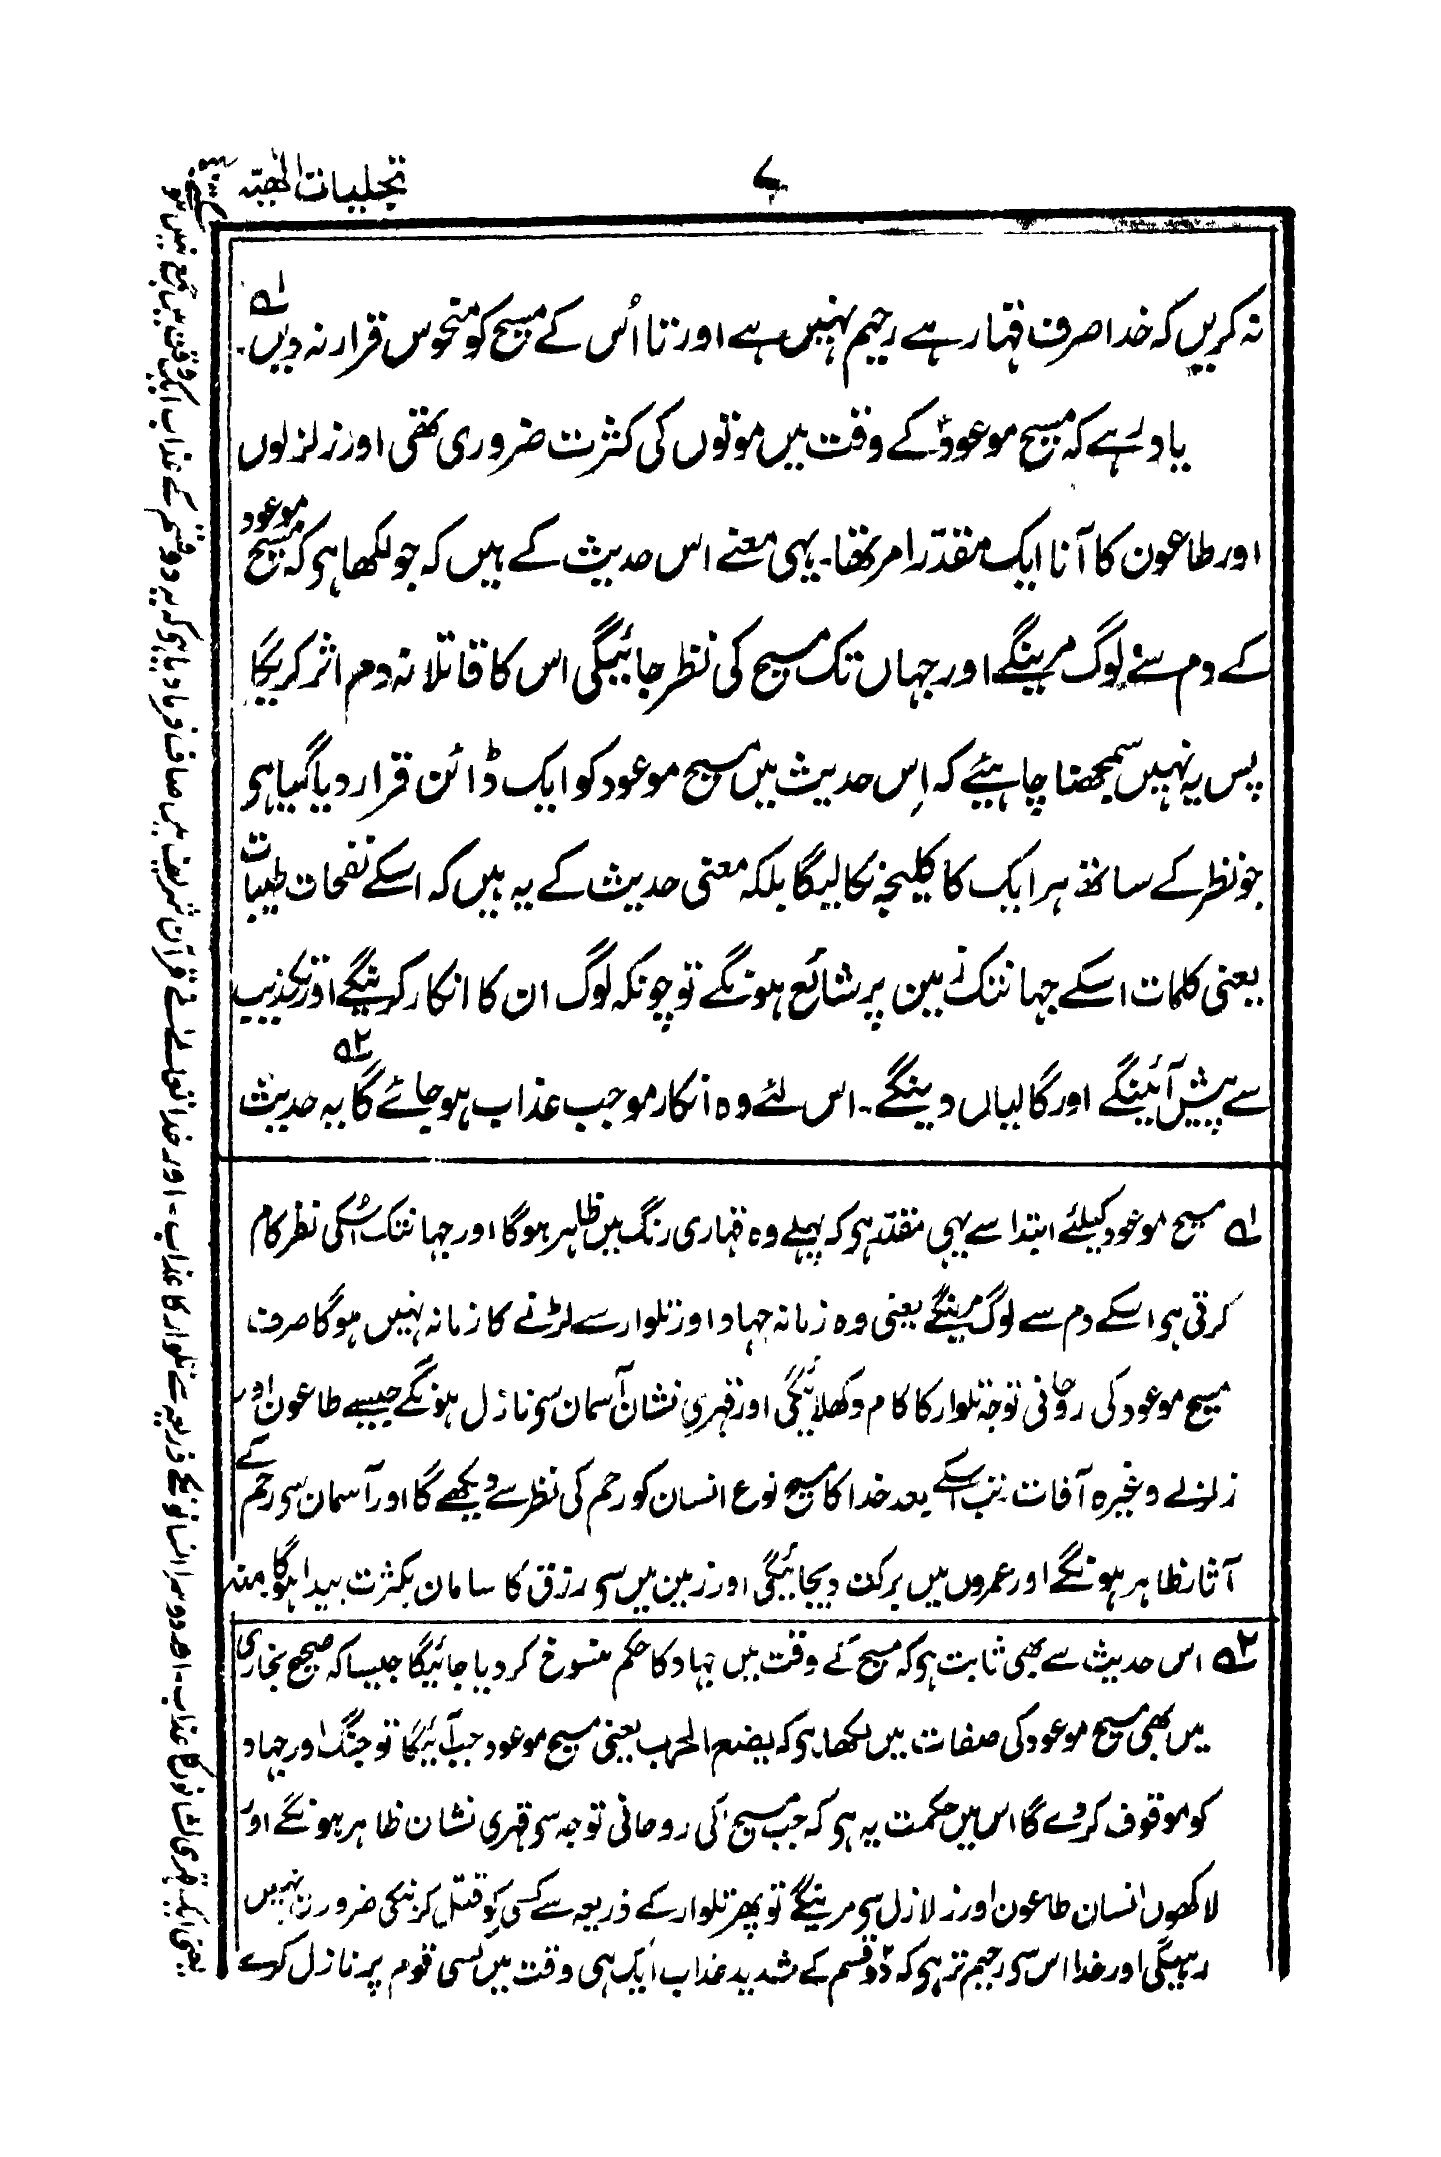 ۷
تجلیات الٰہیہ
نہ کریں کہ خدا صرف قہار ہے رحیم نہیں ہے اور تا اُس کے مسیح کو منحوس قرار نہ دیں۔ ۱؎
یاد رہے کہ مسیح موعودؑ کے وقت میں موتوں کی کثرت ضروری تھی اور زلزلوں
اور طاعون کا آنا ایک مقدّر امر تھا۔ یہی معنے اس حدیث کے ہیں کہ جو لکھا ہو کہ مسیح موعود
کے دم سے لوگ مرینگے اور جہاں تک مسیح کی نظر جائیگی اس کا قاتلانہ دم اثر کریگا
پس یہ نہیں سمجھنا چاہیئے کہ اِس حدیث میں مسیح موعود کو ایک ڈائن قرار دیا گیا ہو
جو نظر کے ساتھ ہر ایک کا کلیجہ نکالیگا بلکہ معنی حدیث کے یہ ہیں کہ اسکے نفحات طیبات
یعنی کلمات اسکے جہانتک زمین پر شائع ہونگے تو چونکہ لوگ ان کا انکار کرینگے اور تکذیب
سے پیش آئینگے اور گالیاں دینگے۔ اس لئے وہ انکار موجب عذاب ہو جائے گا ۲؎ یہ حدیث
۱؎ مسیح موعود کیلئے ابتدا سے یہی مقدر ہو کہ پہلے وہ قہاری رنگ میں ظاہر ہوگا اور جہانتک اُسکی نظر کام
کرتی ہو اسکے دم سے لوگ مرینگے یعنی وہ زمانہ جہاد اور تلوار سے لڑنے کا زمانہ نہیں ہوگا صرف
مسیح موعود کی روحانی توجہ تلوار کا کام دکھلائیگی اور قہری نشان آسمان سو نازل ہونگے جیسے طاعون اور
زلزلے وغیرہ آفات۔ تب اسکے بعد خدا کا مسیح نوع انسان کو رحم کی نظر سے دیکھے گا اور آسمان سو رحم کے
آثار ظاہر ہونگے اور عمروں میں برکت دیجائیگی اور زمین میں سو رزق کا سامان بکثرت پیدا ہوگا۔ منہ
۲؎ اس حدیث سے بھی ثابت ہو کہ مسیح کے وقت میں جہاد کا حکم منسوخ کر دیا جائیگا جیسا کہ صحیح بخاری
میں بھی مسیح موعود کی صفات میں لکھا ہو کہ یضع الحرب یعنی مسیح موعود جب آئیگا تو جنگ اور جہاد
کو موقوف کر دے گا اس میں حکمت یہ ہو کہ جب مسیح کی روحانی توجہ سو قہری نشان ظاہر ہونگے اور
لاکھوں انسان طاعون اور زلازل سو مرینگے تو پھر تلوار کے ذریعہ سے کسی کو قتل کرنیکی ضرورت نہیں
رہیگی اور خدا اس سو رحیم تر ہو کہ دو قسم کے شدید عذاب ایک ہی وقت میں کسی قوم پر نازل کرے
یعنی ایک قہری نشانوں کا عذاب۔ اور دوسرا انسانوں کے ذریعہ سے تلوار کا عذاب۔ اور خدا تعالےٰ نے قرآن شریف میں صاف فرما دیا ہو کہ یہ دو قسم کے عذاب ایک وقت میں جمع نہیں ہو